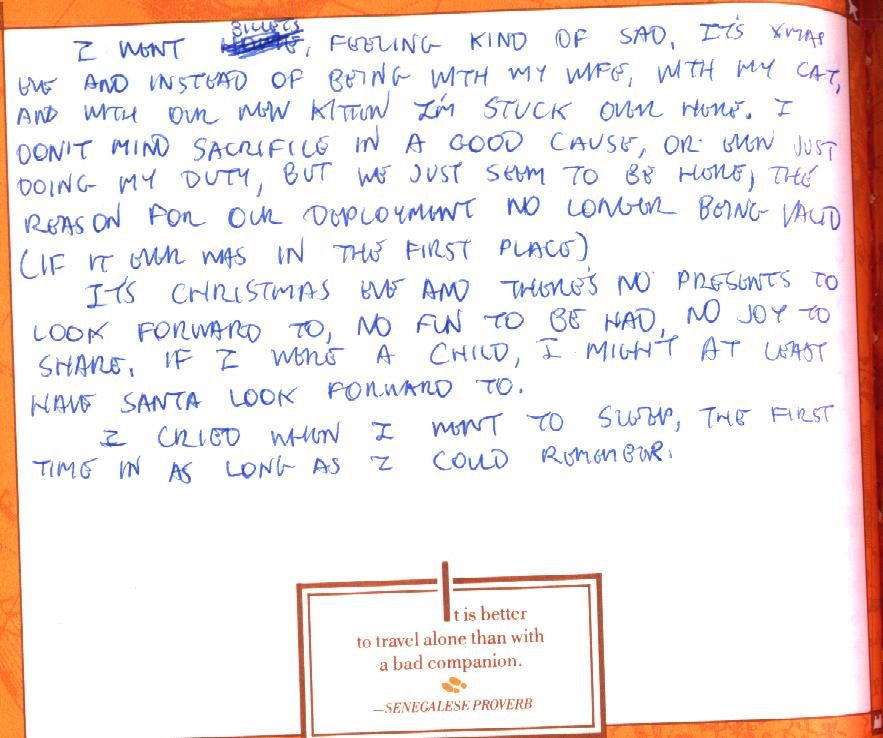 BILLETS
I WENT HOME, FEELING KIND OF SAD, IT'S XMAS
EVE AND INSTEAD OF BEING WITH MY WIFE, WITH MY CAT,
AND WITH OUR NEW KITTEN I'M STUCK OVER HERE. I
DON'T MIND SACRIFICE IN A GOOD CAUSE, OR EVEN JUST
DOING MY DUTY, BUT WE JUST SEEM TO BE HERE, THE
REASON FOR OUR DEPLOYMENT NO LONGER BEING VALID
(IF IT EVER WAS IN THE FIRST PLACE)
IT'S CHRISTMAS EVE AND THERE'S NO PRESENTS TO
LOOK FORWARD TO, NO FUN TO BE HAD, NO JOY TO
SHARE. IF I WERE A CHILD, I MIGHT AT LEAST
HAVE SANTA LOOK FORWARD TO.
I CRIED WHEN I WENT TO SLEEP, THE FIRST
TIME IN AS LONG AS I COULD REMEMBER.
It is better
to travel alone than with
a bad companion.
—SENEGALESE PROVERB